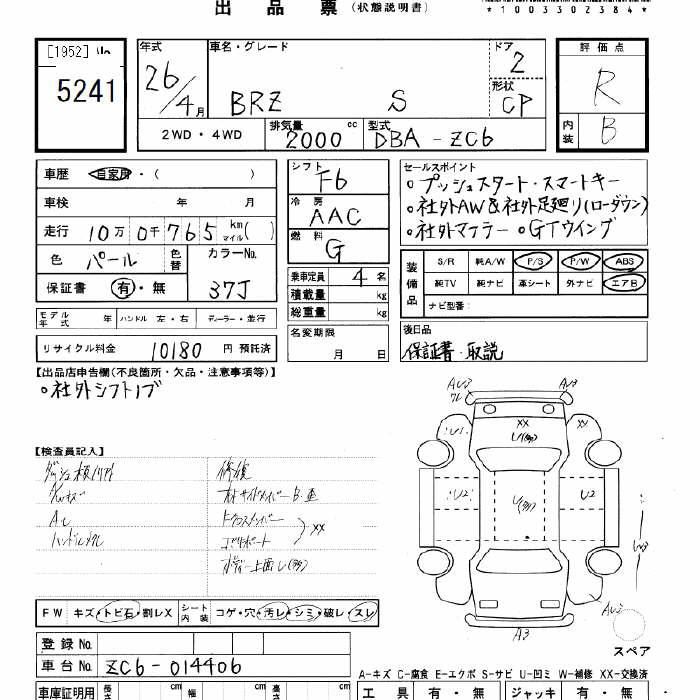 出品票(状態説明書)
*1003302384*
[1952]
5241
年式
26/4月
車名・グレード
BRZ S
ドア
2
形状
CP
評価点
R
内装
B
2WD・4WD
排気量
2000 cc
型式
DBA-ZC6
車歴
自家用・( )
車検 年 月
走行 10万0千765 km マイル( )
色 パール
色替
カラーNo.
37J
保証書 有・無
シフト
F6
冷房
AAC
燃料
G
乗車定員 4名
積載量 kg
総重量 kg
セールスポイント
○プッシュスタート・スマートキー
○社外AW&社外足廻り(ローダウン)
○社外マフラー ○GTウイング
装備品
S/R 純A/W P/S P/W ABS
純TV 純ナビ 革シート 外ナビ エアB
ナビ型番:
モデル年式 年 ハンドル 左・右 ディーラー・並行
リサイクル料金 10180 円 預託済
名変期限
月 日
後日品
保証書・取説
【出品店申告欄(不良箇所・欠品・注意事項等)】
○社外シフトノブ
【検査員記入】
修復
XX
A3
U2
U2
XX
XX
FW キズ・トビ石・割レX
シート内装 コゲ・穴・汚レ・シミ・破レ・スレ
スペア
登録No.
車台No. ZC6-014406
A-キズ C-腐食 E-エクボ S-サビ U-凹ミ W-補修 XX-交換済
車庫証明用 長さ cm 幅 cm 高さ cm
工具 有・無 ジャッキ 有・無